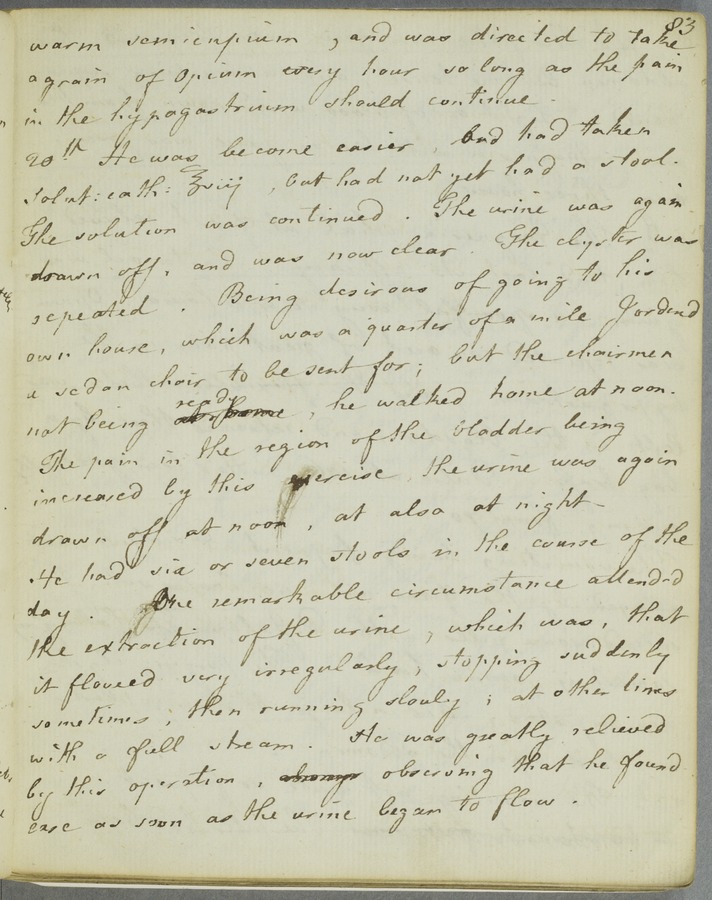 83
warm semicupium, and was directed to take
a grain of Opium every hour so long as the pain
in the hypogastrium should continue.
20th He was become easier, and had taken
solut: cath: ℥viij, but had not yet had a stool.
The solution was continued. The urine was again
drawn off, and was now clear. The clyster was
repeated. Being desirous of going to his
own house, which was a quarter of a mile I ordered
a sedan chair to be sent for; but the chairmen
ready
not being at home, he walked home at noon.
The pain in the region of the bladder being
increased by this exercise, the urine was again
drawn off at noon, at also at night-
He had six or seven stools in the course of the
day. One remarkable circumstance attended
the extraction of the urine, which was, that
it flowed very irregularly, stopping suddenly
sometimes, then running slowly; at other times
with a full stream. He was greatly relieved
by this operation, always observing that he found
ease as soon as the urine began to flow.